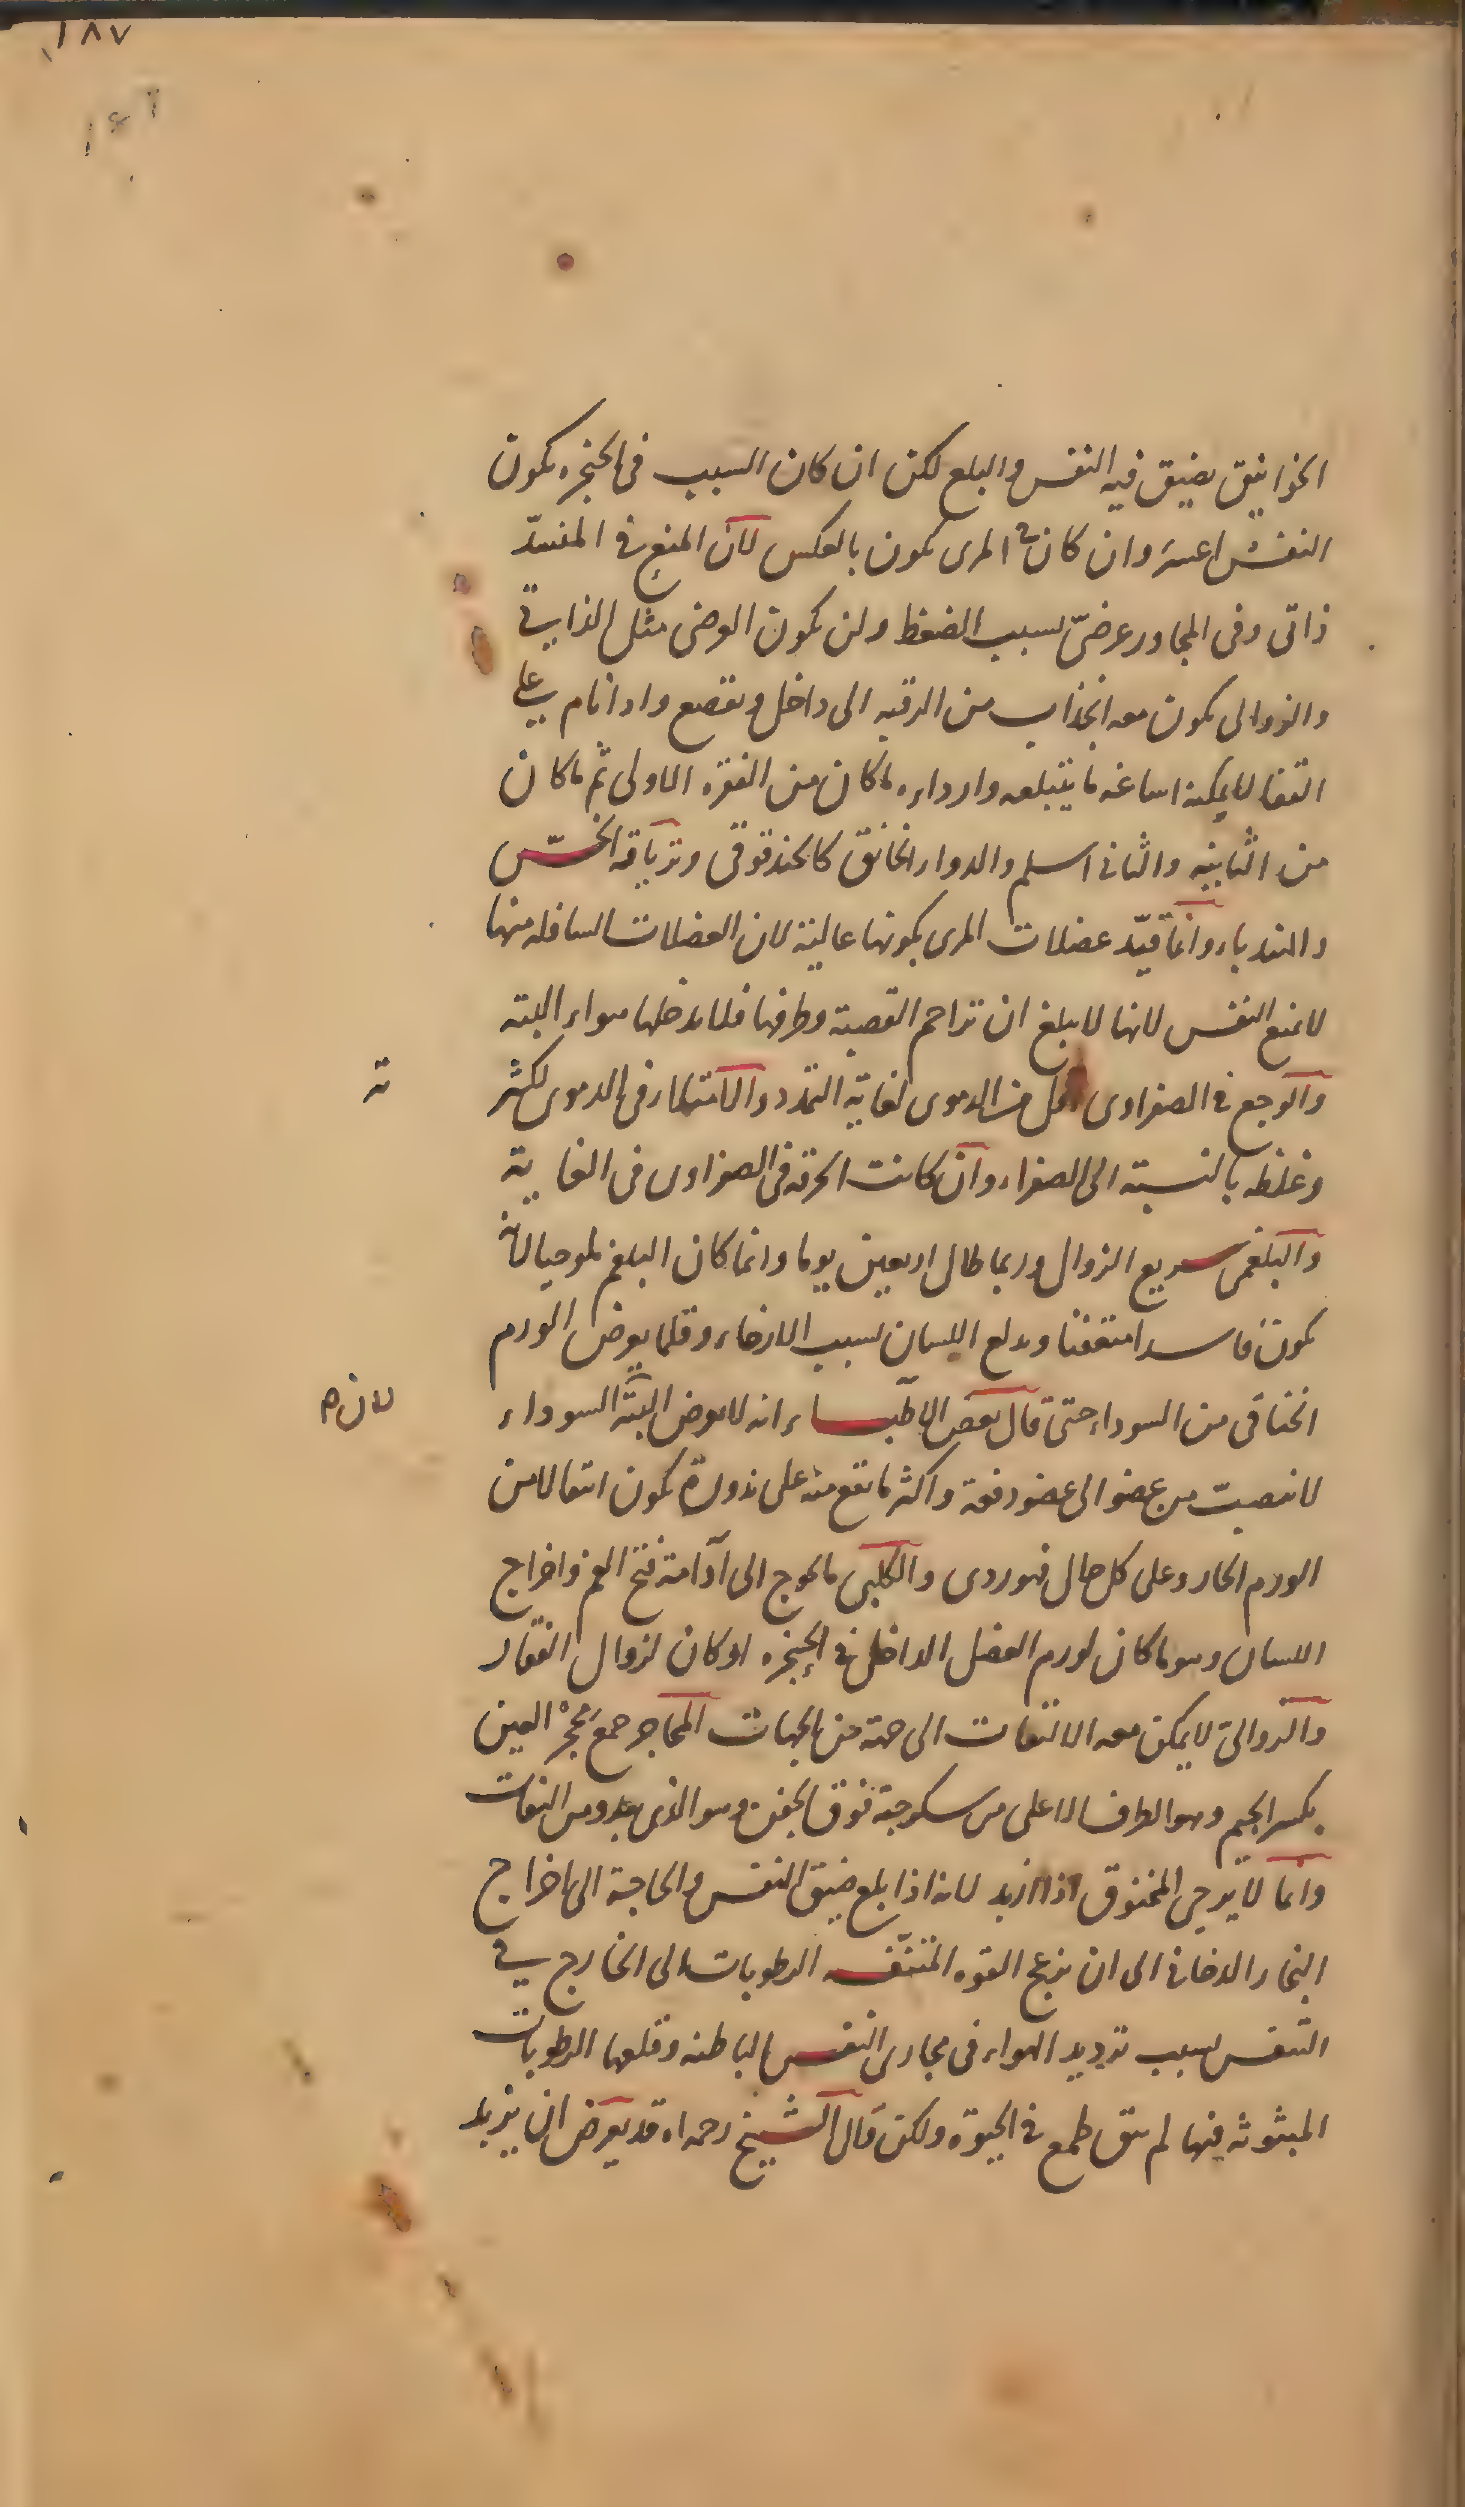 ١٨٧
١٤٦
الخوانيق يضيق فيه النفس والبلع لكن ان كان السبب في الحنجره يكون
النفس اعسر وان كان في المرى يكون بالعكس لان المنع في المنسدّ
ذاتى وفى المجاور عرضىّ بسبب الضغط ولن يكون العرضى مثل الذاتي
والزوالى يكون معه انجذاب من الرقبه الى داخل وتقصع واذا نام على
القفا لا يمكنه اساغه ما يبتلعه وارداءه ما كان من الفقره الاولى ثم ما كان
من الثانيه والثانى اسلم والدواء الخانق كالحندقوقى وترياقه الخسّ
والهندباء وانما قيّد عضلات المرى بكونها عالية لان العضلات السافله منها
لا تمنع النفس لانها لا تبلغ ان تزاحم القصبة وطرفها فلا يدخلها هواء البته
والوجع في الصفراوى اقل من الدموى لغاية التمدد والامتلاء فى الدموى لكثر
ته
وغلظه بالنسبة الى الصفراء وان كانت الحرقه فى الصفراوى فى الغاية
والبلغمى سريع الزوال وربما طال اربعين يوما وانما كان البلغم بلوحيا لانه
يكون فاسدا متعفنا ويدلع اللسان بسبب الارخاء وقلما يعرض الورم
الخناقى من السوداء حتى قال بعض الاطباء انه لا يعرض البتّة السوداء
لان م
لا تنصبّ من عضو الى عضو دفعة واكثر ما تقع منه على ندورة يكون انتقالا من
الورم الحار وعلى كل حال فهو ردى والكلبى ما يحوج الى ادامة فتح الفم واخراج
اللسان وهو ما كان لورم العضل الداخل في الحنجره او كان لزوال الفقار
والزوالىّ لا يمكن معه الالتفات الى جهة من الجهات المحاجر جمع محجر العين
بكسر الجيم وهو الطرف الاعلى من سكرجة فوق الجفن وهو الذى يبدو من النقاب
وانما لا يرجى المخنوق اذا ازبد لانه اذا بلغ ضيق النفس والحاجة الى اخراج
البخار الدخانى الى ان تزعج القوه المتنفّسه الرطوبات الى الخارج في
التنفس بسبب ترديد الهواء فى مجارى النفس الباطنه وقلعها الرطوبات
المبثوثه فيها لم يبق طمع في الحيوة ولكن قال الشيخ رحمه الله قد يعرض ان يزبد